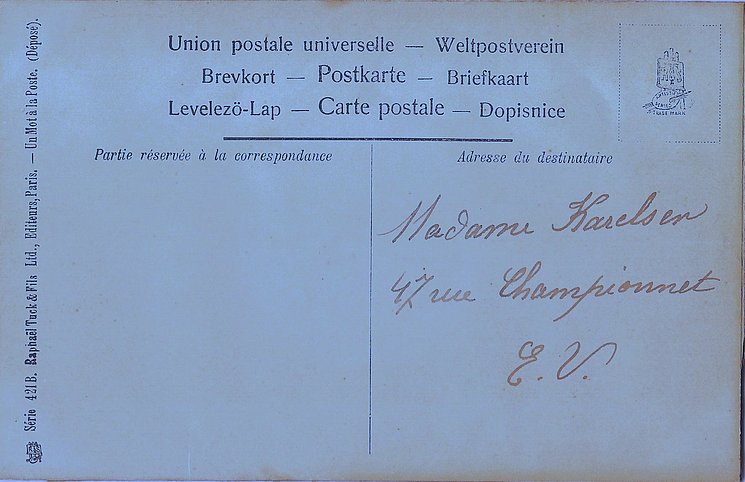 Union postale universelle — Weltpostverein
Brevkort — Postkarte — Briefkaart
Levelezö-Lap — Carte postale — Dopisnice
Partie réservée à la correspondance
Adresse du destinataire
Madame Karelsen
47 rue Championnet
E. V.
Série 421 B. Raphaël Tuck & Fils Ltd., Editeurs, Paris. — Un Mot à la Poste. (Déposé).
TRADE MARK